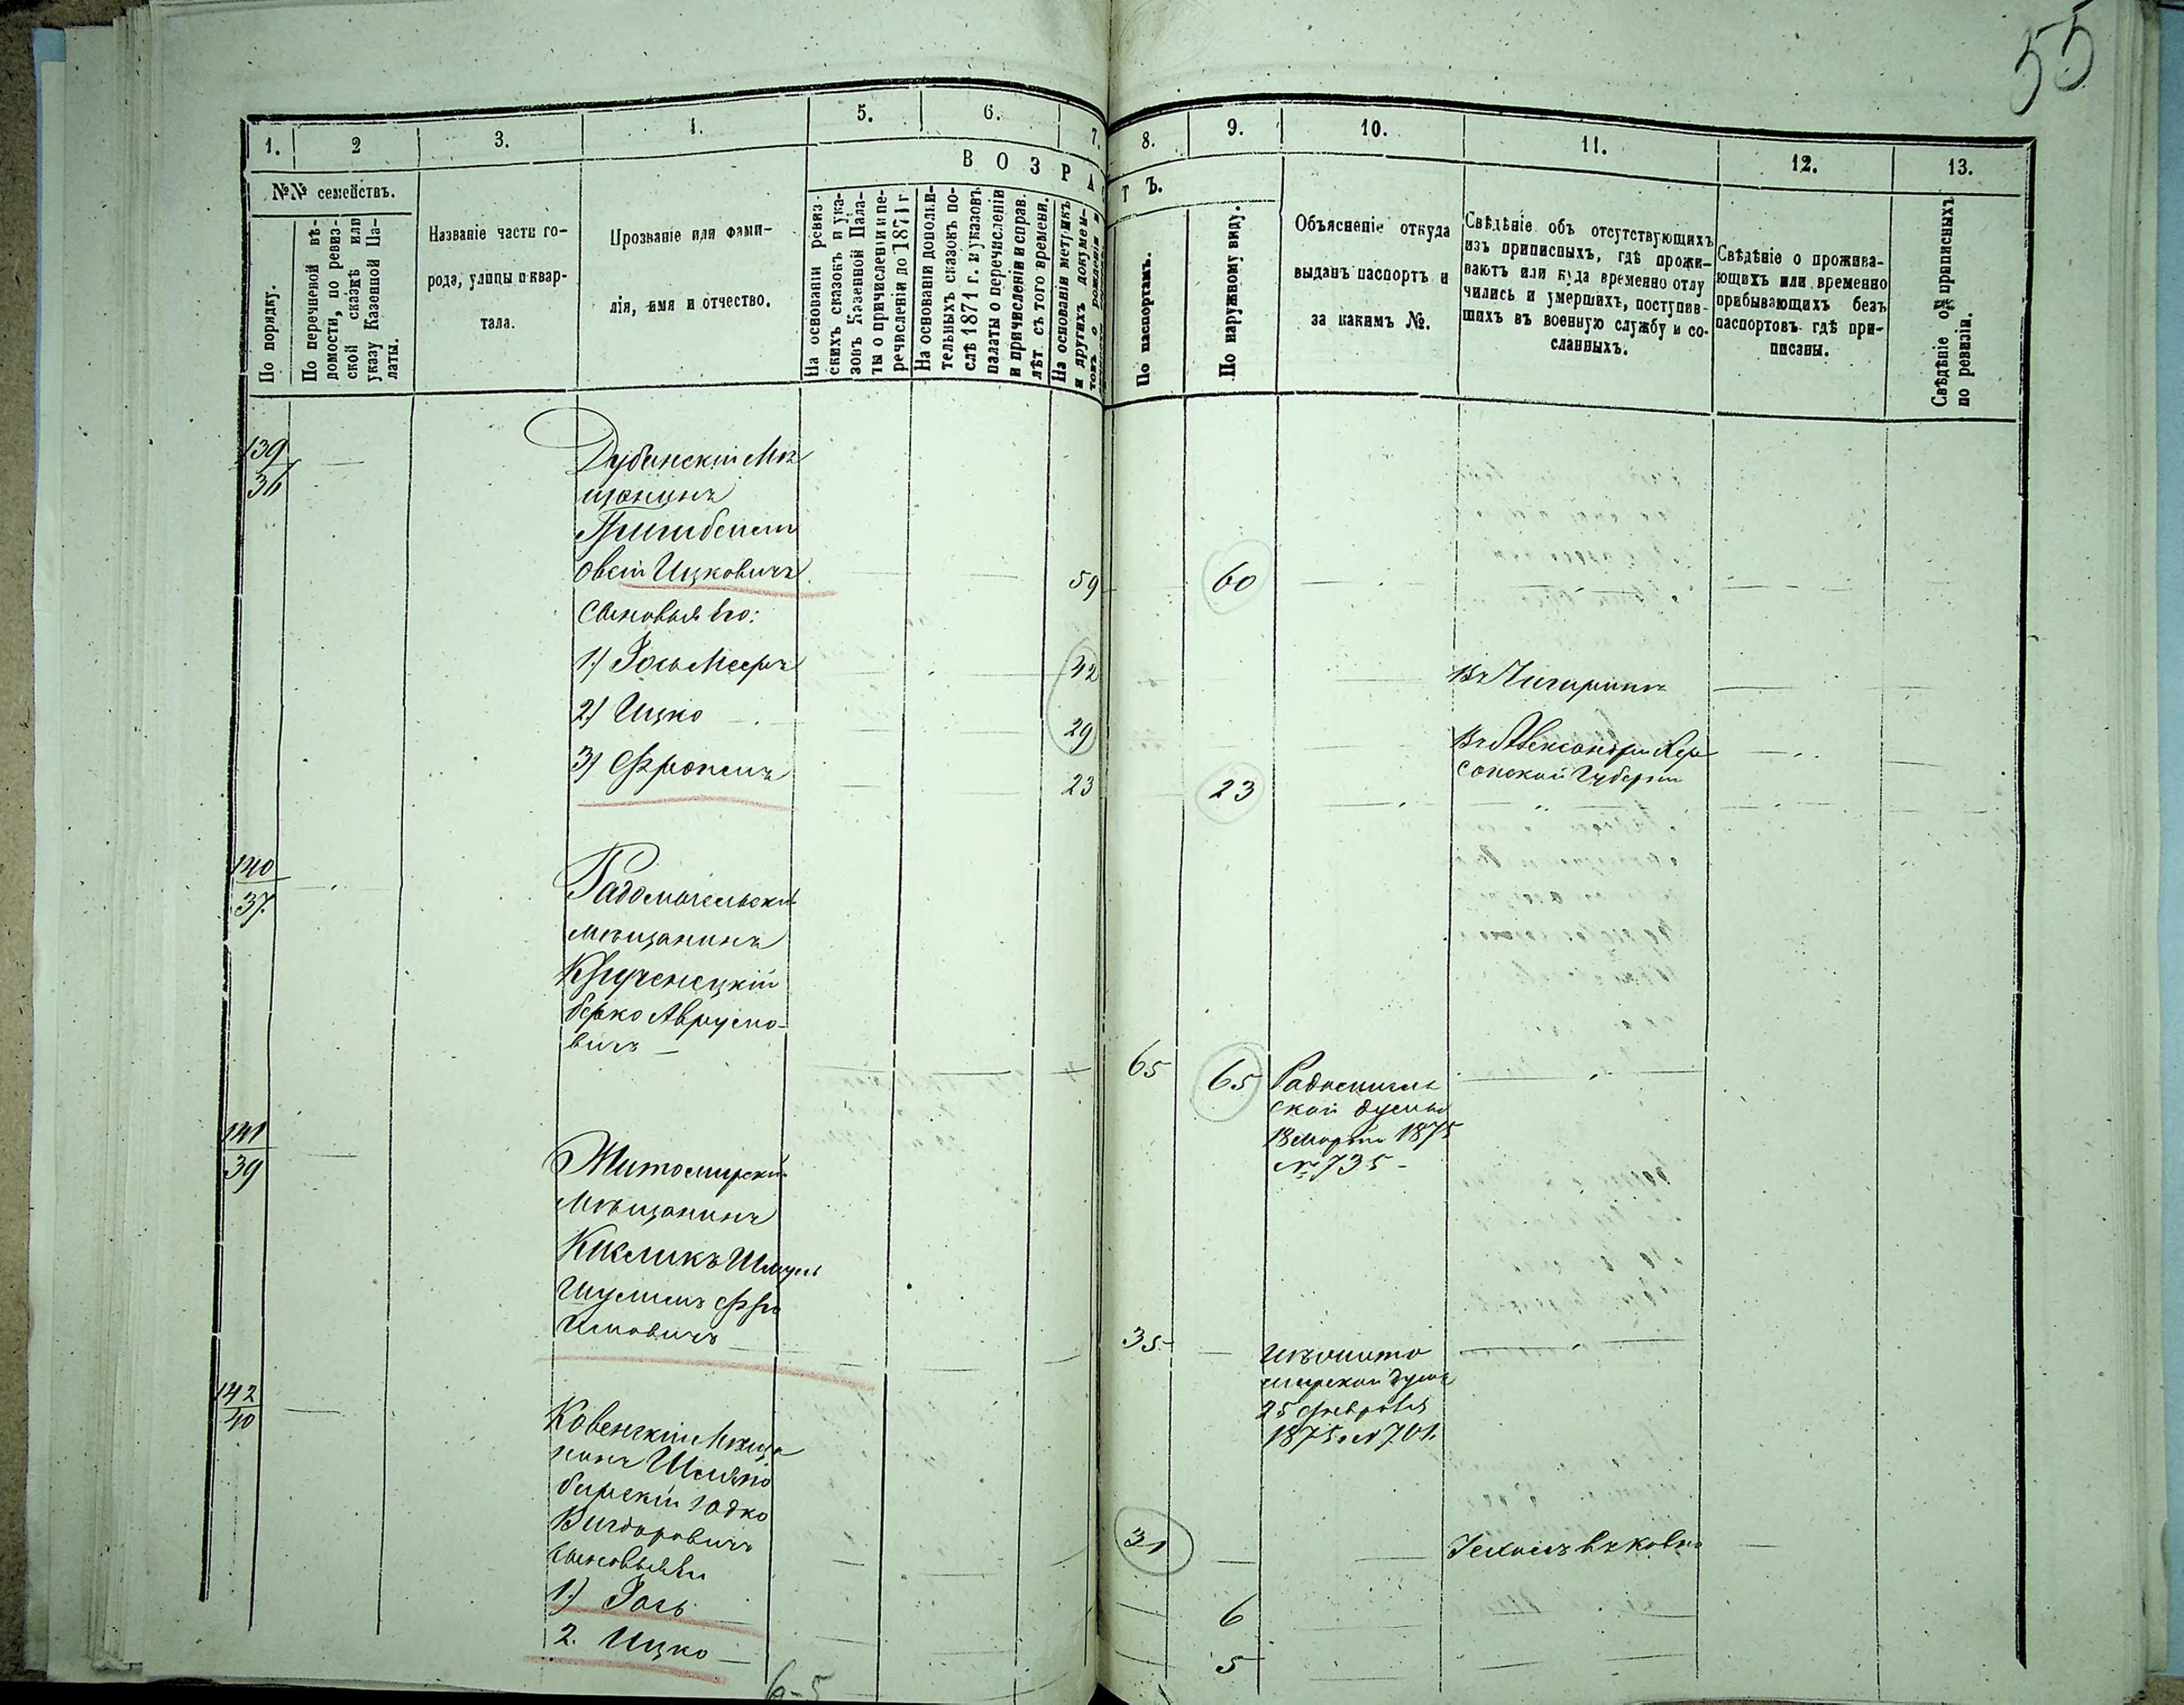 55
1.
2
3.
4.
5.
6.
7.
8.
9.
10.
11.
12.
13.
№№ семействъ.
По порядку.
По перечневой вѣ-
домости, по ревиз-
ской сказкѣ или
указу Казенной Па-
латы.
Названіе части го-
рода, улицы и квар-
тала.
Прозваніе или фами-
лія, имя и отчество.
ВОЗРАСТЪ.
На основаніи ревиз-
скихъ сказокъ и ука-
зовъ Казенной Пала-
ты о причисленіи и пе-
речисленіи до 1871 г
На основаніи дополни-
тельныхъ сказокъ по-
слѣ 1871 г. и указовъ
палаты о перечисленіи
и причисленіи и справ.
лѣт. съ того времени.
На основаніи метрикъ
и другихъ докумен-
товъ о рожденіи и
По паспортамъ.
По наружному виду.
Объясненіе откуда
выданъ паспортъ и
за какимъ №.
Свѣдѣніе объ отсутствующихъ
изъ приписныхъ, гдѣ прожи-
ваютъ или куда временно отлу
чились и умершихъ, поступив-
шихъ въ военную службу и со-
сланныхъ.
Свѣдѣніе о прожива-
ющихъ или временно
прибывающихъ безъ
паспортовъ гдѣ при-
писаны.
Свѣдѣніе о приписныхъ
по ревизіи.
139
36
Дубенскій Мѣ
щанинъ
Овсій Ицковичъ
59
60
Сыновья его:
1) Іось Мееръ
42
Въ Чигиринѣ
2) Ицко
29
Въ Александріи Хер
сонской Губерніи
3) Фроимъ
23
23
140
37
Радомысельскій
мѣщанинъ
Крученецкій
Берко Аврумо-
вичъ
65
65
Радомысль
ской думы
18 Марта 1875
№ 735
141
39
Житомирскій
Мѣщанинъ
Кикликъ Шмуль
Шулимъ Фро
имовичъ
35
Изъ Жито
мирской думы
25 Февраля
1875 № 701.
142
40
Ковенскій Мѣща
нинъ
Юдко
Вигдоровичъ
31
Уехалъ въ Ковно
сыновья его
1) Іось
6
2. Ицко
5
6-5